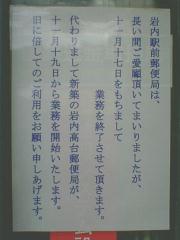 岩内駅前郵便局は、
長い間ご愛顧頂いてまいりましたが、
十一月十七日をもちまして
業務を終了させて頂きます。
代わりまして新築の岩内高台郵便局が、
十一月十九日から業務を開始いたします。
旧に倍してのご利用をお願い申しあげます。